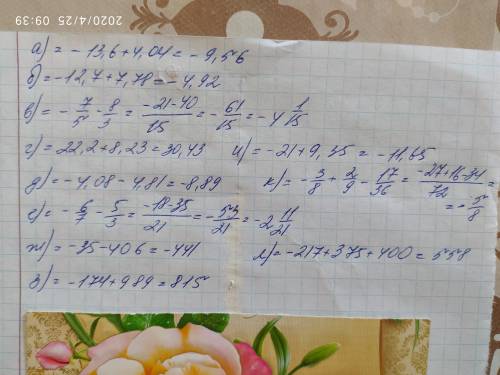 2020/4/25 09:39
а) = - 13,6 + 4,04 = - 9,56
б) = - 12,7 + 7,78 = - 4,92
в) = - 7/5 - 8/3 = (-21-40)/15 = - 61/15 = - 4 1/15
г) = 22,2 + 8,23 = 30,43
и) = - 21 + 9,35 = - 11,65
д) = - 4,08 - 4,81 = - 8,89
к) = - 3/8 + 2/9 - 17/36 = (-27+16-34)/72 = = - 5/8
е) = - 6/7 - 5/3 = (-18-35)/21 = - 53/21 = - 2 11/21
ж) = - 35 - 406 = - 441
л) = - 217 + 375 + 400 = 558
з) = - 174 + 989 = 815